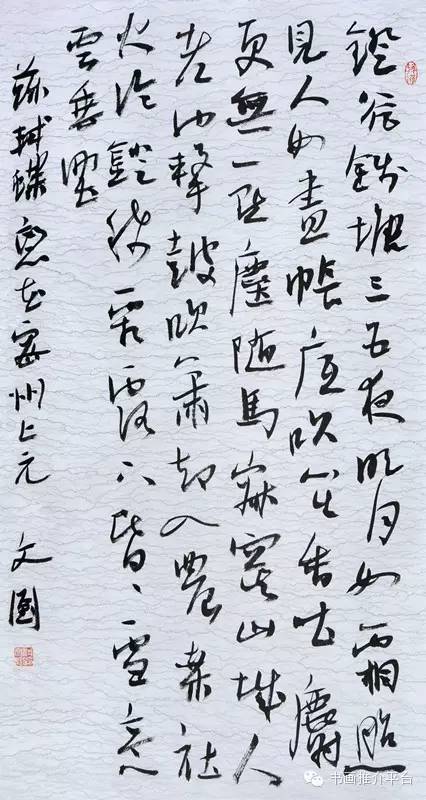 鐙火錢塘三五夜明月如霜照
見人如畫帳底吹笙香吐麝
更無一點塵隨馬寂寞山城人
老也擊鼓吹簫却入農桑社
火冷鐙稀霜露下昏々雪意
雲垂野
蘇軾蝶戀花密州上元 文國
书画推介平台